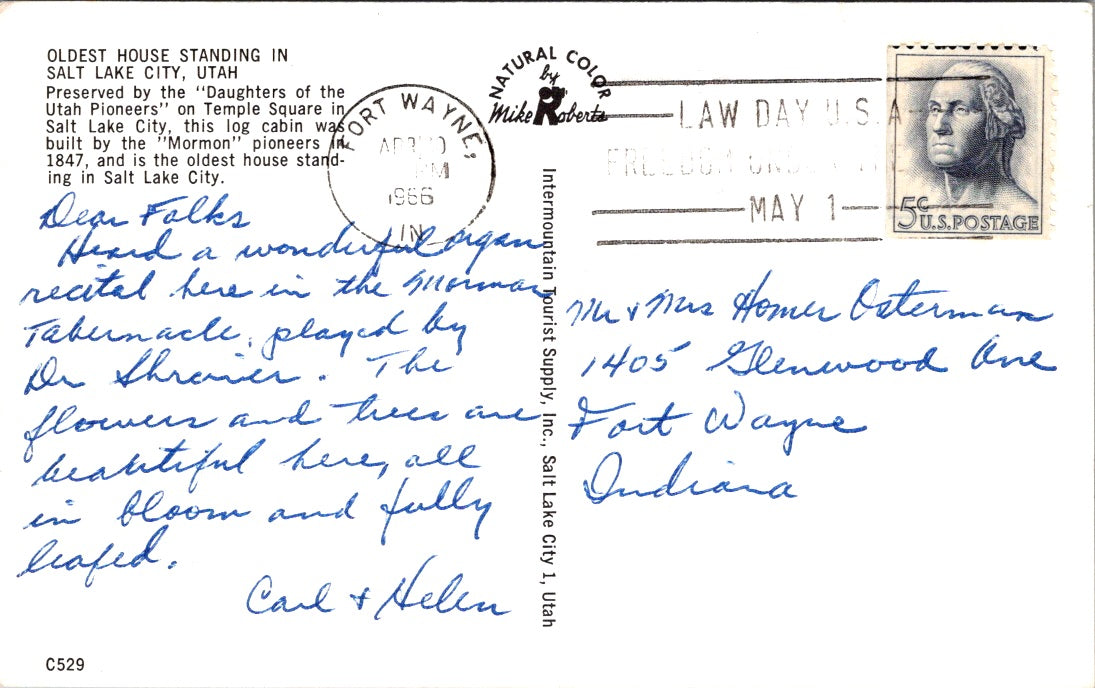 OLDEST HOUSE STANDING IN
SALT LAKE CITY, UTAH
Preserved by the "Daughters of the
Utah Pioneers" on Temple Square in
Salt Lake City, this log cabin was
built by the "Mormon" pioneers in
1847, and is the oldest house stand-
ing in Salt Lake City.
Dear Folks
Heard a wonderful organ
recital here in the Mormon
Tabernacle, played by
Dr Shreiner. The
flowers and trees are
beautiful here, all
in bloom and fully
leafed.
Carl & Helen
C529
NATURAL COLOR
by
Mike Roberts
Intermountain Tourist Supply, Inc., Salt Lake City 1, Utah
FORT WAYNE,
PM
1966
IN
LAW DAY U.S.A
FREEDOM UNDER
MAY 1
5c U.S. POSTAGE
Mr & Mrs Homer Osterman
1405 Glenwood Ave
Fort Wayne
Indiana